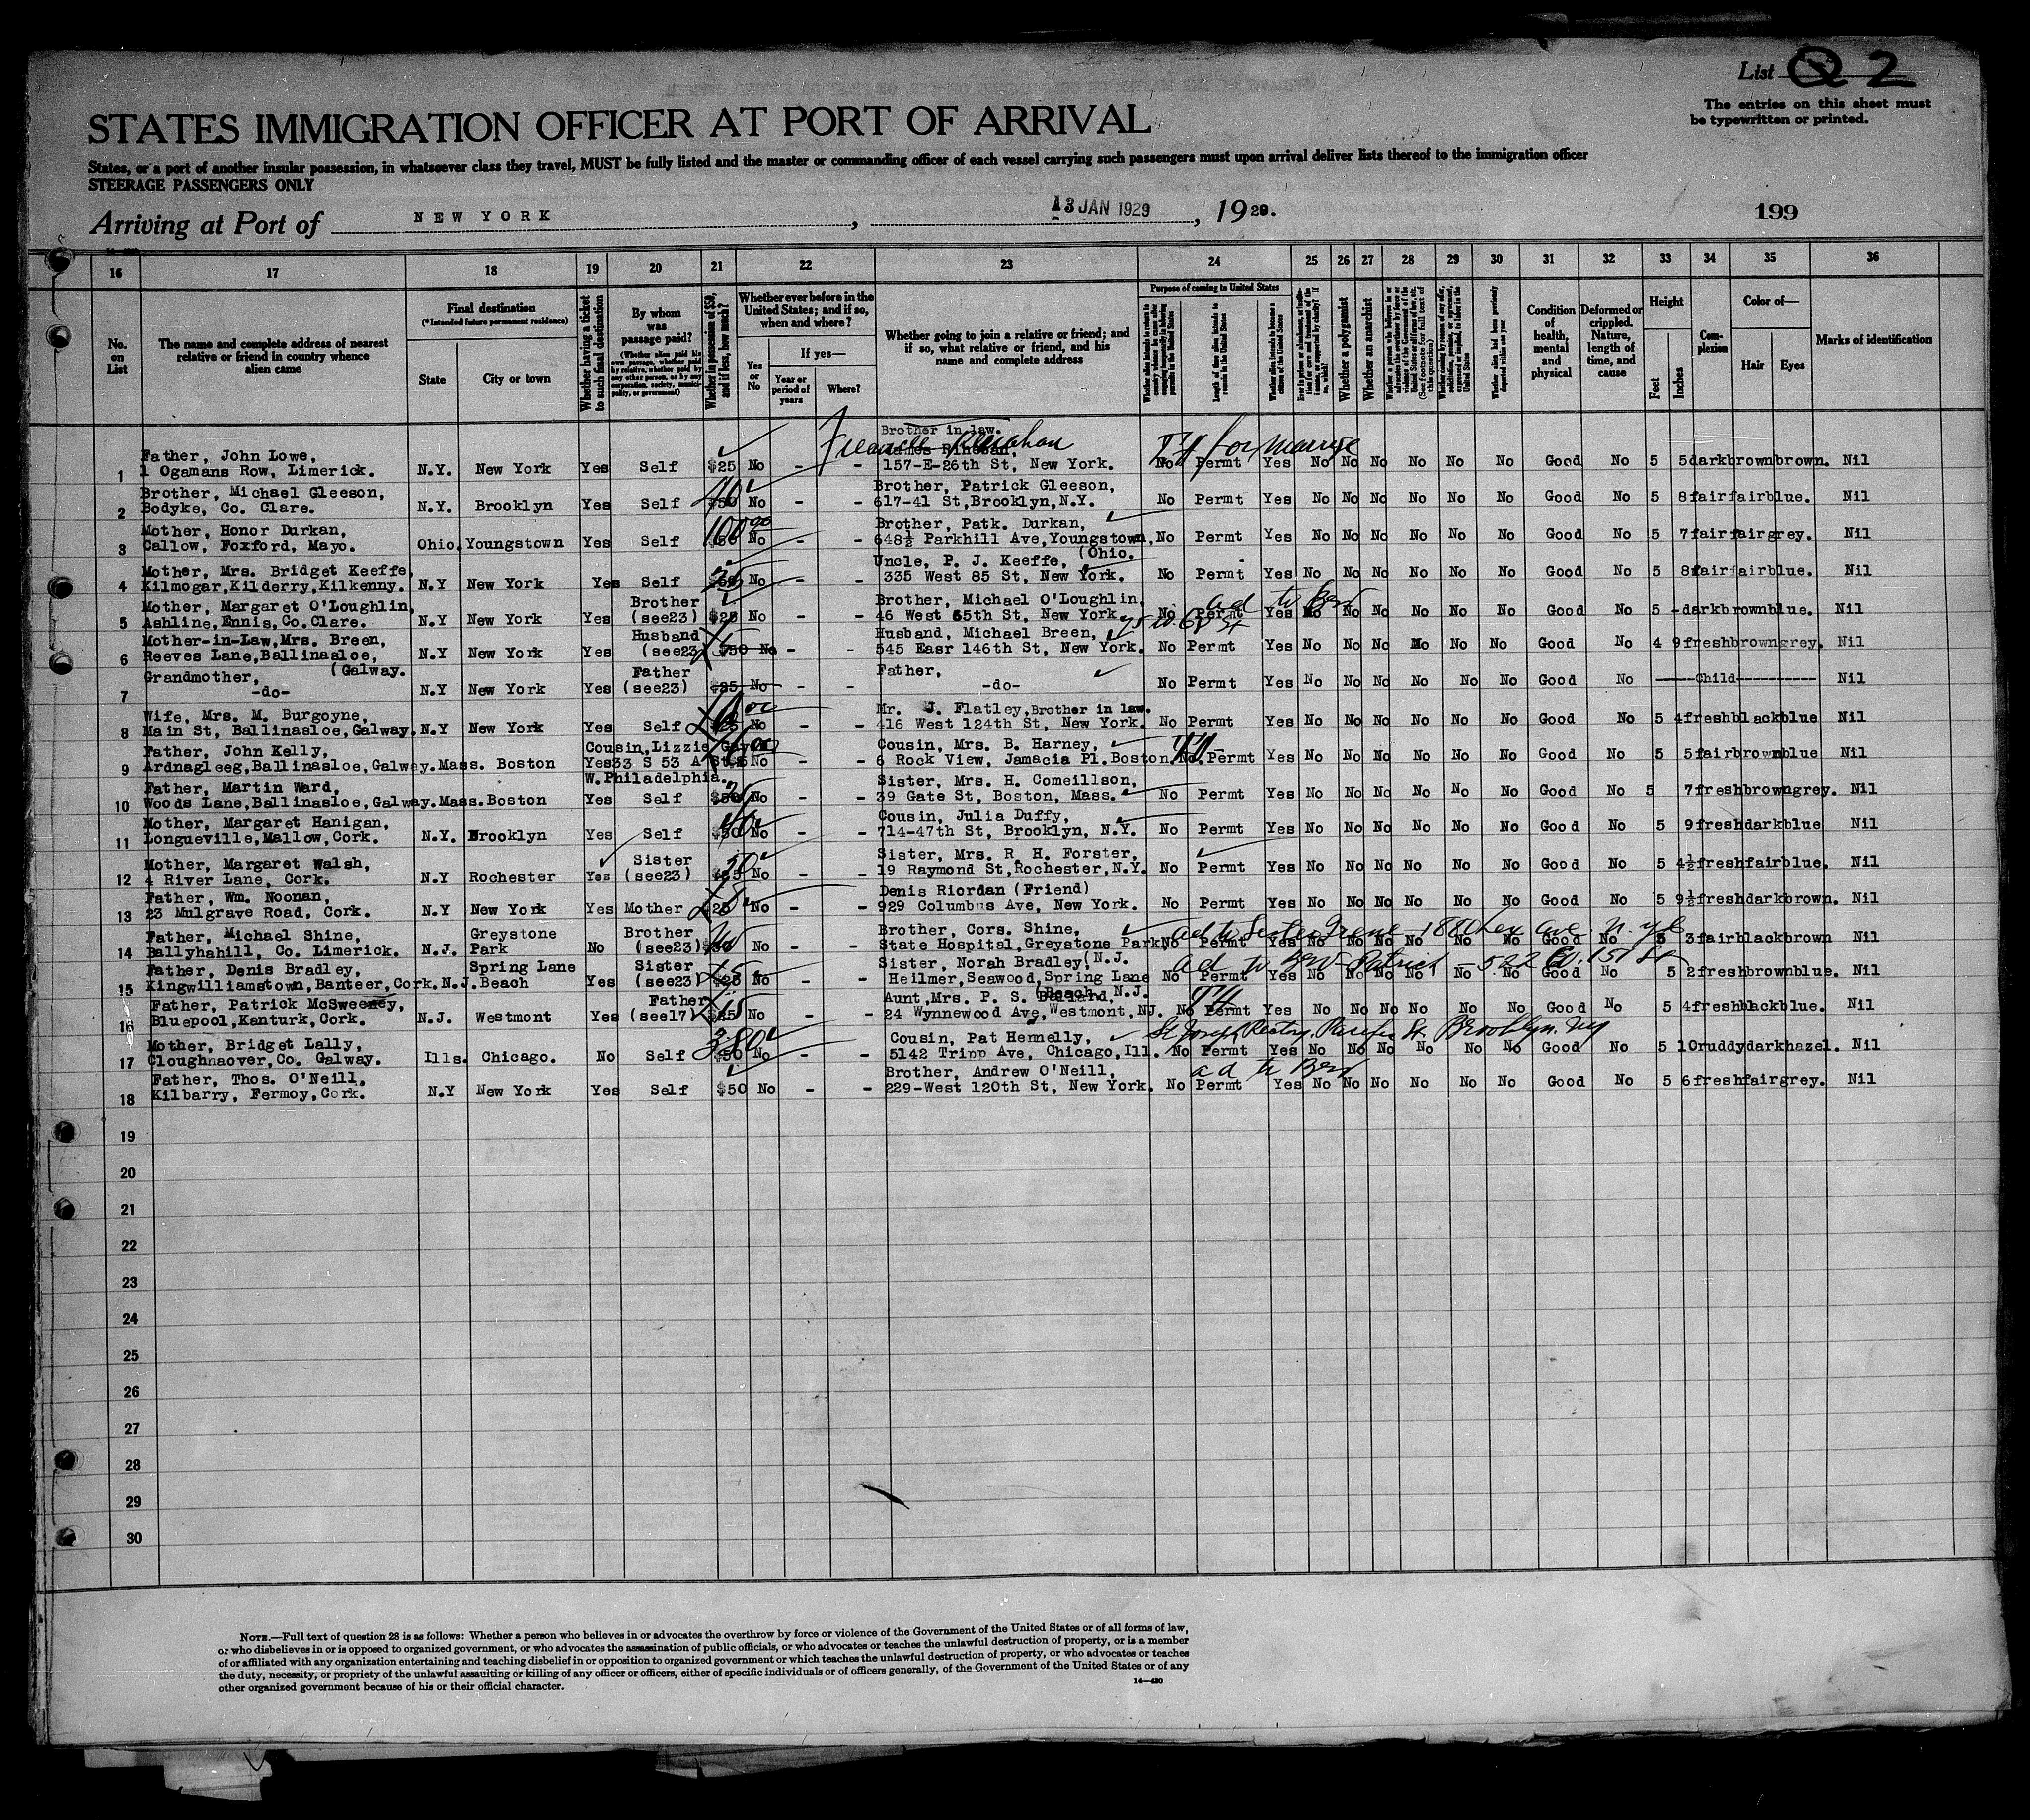 List Q 2
The entries on this sheet must
be typewritten or printed.
STATES IMMIGRATION OFFICER AT PORT OF ARRIVAL
States, or a port of another insular possession, in whatsoever class they travel, MUST be fully listed and the master or commanding officer of each vessel carrying such passengers must upon arrival deliver lists thereof to the immigration officer
STEERAGE PASSENGERS ONLY
Arriving at Port of NEW YORK, 13 JAN 1929, 1929.
199
16 17 18 19 20 21 22 23 24 25 26 27 28 29 30 31 32 33 34 35 36
No. on List
The name and complete address of nearest relative or friend in country whence alien came
Final destination
(*Intended future permanent residence)
State City or town
Whether having a ticket to such final destination
By whom was passage paid?
(Whether alien paid his own passage, whether paid by relative, whether paid by any other person, or by any corporation, society, municipality, or government)
Whether in possession of $50, and if less, how much?
Whether ever before in the United States; and if so, when and where?
Yes or No
If yes—
Year or period of years
Where?
Whether going to join a relative or friend; and if so, what relative or friend, and his name and complete address
Purpose of coming to United States
Length of time alien intends to remain in the United States
Whether alien intends to become a citizen of the United States
Whether a polygamist
Whether an anarchist
(See footnote for full text of this question)
Whether alien had been previously deported within one year
Condition of health, mental and physical
Deformed or crippled. Nature, length of time, and cause
Height
Feet Inches
Complexion
Color of—
Hair Eyes
Marks of identification
Brother in law.
Father, John Lowe, for marriage
1 1 Ogamans Row, Limerick. N.Y. New York Yes Self $25 No - - 157-E-26th St, New York. No Permt Yes No No No No No No Good No 5 5 dark brown brown. Nil
Brother, Michael Gleeson, 40 Brother, Patrick Gleeson,
2 Bodyke, Co. Clare. N.Y. Brooklyn Yes Self $50 No - - 617-41 St,Brooklyn,N.Y. No Permt Yes No No No No No No Good No 5 8 fair fair blue. Nil
Mother, Honor Durkan, 100 Brother, Patk. Durkan,
3 Callow, Foxford, Mayo. Ohio. Youngstown Yes Self $50 No - - 648½ Parkhill Ave,Youngstown, No Permt Yes No No No No No No Good No 5 7 fair fair grey. Nil
(Ohio.
Mother, Mrs. Bridget Keeffe, Uncle, P. J. Keeffe,
4 Kilmogar,Kilderry,Kilkenny. N.Y New York Yes Self No - - 335 West 85 St, New York. No Permt Yes No No No No No No Good No 5 8 fair fair blue. Nil
Mother, Margaret O'Loughlin, Brother Brother, Michael O'Loughlin, ad to Bro
5 Ashline,Ennis,Co.Clare. N.Y New York Yes (see23) $25 No - - 46 West 65th St, New York. No Permt Yes No No No No No No Good No 5 - dark brown blue. Nil
Mother-in-Law,Mrs. Breen, Husband Husband, Michael Breen,
6 Reeves Lane,Ballinasloe, N.Y New York Yes (see23 $50 No - - 545 Easr 146th St, New York. No Permt Yes No No No No No No Good No 4 9 fresh brown grey. Nil
(Galway.
Grandmother, Father Father,
7 -do- N.Y New York Yes (see23) $25 No - - -do- No Permt Yes No No No No No No Good No Child Nil
Wife, Mrs. M. Burgoyne, Mr. J. Flatley,Brother in law.
8 Main St, Ballinasloe,Galway. N.Y New York Yes Self No - - 416 West 124th St, New York. No Permt Yes No No No No No No Good No 5 4 fresh black blue Nil
Father, John Kelly, Cousin,Lizzie Cousin, Mrs. B. Harney,
9 Ardnagleeg,Ballinasloe,Galway. Mass. Boston Yes 33 S 53 A St. No - - 6 Rock View, Jamacia Pl.Boston. No Permt Yes No No No No No No Good No 5 5 fair brown blue Nil
W.Philadelphia.
Father, Martin Ward, Sister, Mrs. H. Comeillson,
10 Woods Lane,Ballinasloe,Galway. Mass. Boston Yes Self $50 No - - 39 Gate St, Boston, Mass. No Permt Yes No No No No No No Good No 5 7 fresh brown grey. Nil
Mother, Margaret Hanigan, Cousin, Julia Duffy,
11 Longueville,Mallow,Cork. N.Y. Brooklyn Yes Self $50 No - - 714-47th St, Brooklyn, N.Y. No Permt Yes No No No No No No Good No 5 9 fresh dark blue Nil
Mother, Margaret Walsh, Sister 50 Sister, Mrs. R. H. Forster,
12 4 River Lane, Cork. N.Y Rochester Yes (see23) $25 No - - 19 Raymond St,Rochester,N.Y. No Permt Yes No No No No No No Good No 5 4½ fresh fair blue. Nil
Father, Wm. Noonan, Denis Riordan (Friend)
13 23 Mulgrave Road, Cork. N.Y New York Yes Mother No - - 929 Columbus Ave, New York. No Permt Yes No No No No No No Good No 5 9½ fresh dark brown. Nil
Father, Michael Shine, Greystone Brother Brother, Cors. Shine, ad to Sister Irene - 1880 Lex ave. n.y.c
14 Ballyhahill, Co. Limerick. N.J. Park No (see23) No - - State Hospital,Greystone Park No Permt Yes No No No No No No Good No 5 3 fair black brown Nil
(N.J.
Father, Denis Bradley, Spring Lane Sister Sister, Norah Bradley, ad to Bro - Patrick - 522 E. 151 St
15 Kingwilliamstown,Banteer,Cork. N.J. Beach Yes (see23) $25 No - - Heilmer,Seawood,Spring Lane No Permt Yes No No No No No No Good No 5 2 fresh brown blue. Nil
(Beach, N.J.
Father, Patrick McSweeney, Father Aunt,Mrs. P. S.
16 Bluepool,Kanturk,Cork. N.J. Westmont Yes (see17) No - - 24 Wynnewood Ave,Westmont, NJ. No Permt Yes No No No No No No Good No 5 4 fresh black blue. Nil
Mother, Bridget Lally, 380 Cousin, Pat Hemelly, St Joseph Brooklyn. ny
17 Cloughnaover,Co. Galway. Ills. Chicago. No Self $50 No - - 5142 Tripp Ave, Chicago,Ill. No Permt Yes No No No No No No Good No 5 10 ruddy dark hazel. Nil
Father, Thos. O'Neill, Brother, Andrew O'Neill, ad to Bro
18 Kilbarry, Fermoy,Cork. N.Y New York Yes Self $50 No - - 229-West 120th St, New York. No Permt Yes No No No No No No Good No 5 6 fresh fair grey. Nil
19
20
21
22
23
24
25
26
27
28
29
30
NOTE.—Full text of question 28 is as follows: Whether a person who believes in or advocates the overthrow by force or violence of the Government of the United States or of all forms of law,
or who disbelieves in or is opposed to organized government, or who advocates the assassination of public officials, or who advocates or teaches the unlawful destruction of property, or is a member
of or affiliated with any organization entertaining and teaching disbelief in or opposition to organized government or which teaches the unlawful destruction of property, or who advocates or teaches
the duty, necessity, or propriety of the unlawful assaulting or killing of any officer or officers, either of specific individuals or of officers generally, of the Government of the United States or of any
other organized government because of his or their official character.
14—430